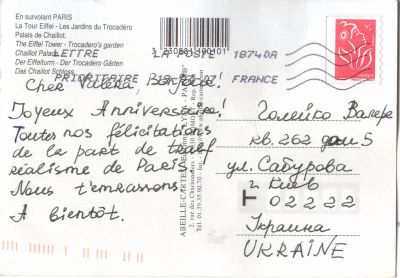 En survolant PARIS
La Tour Eiffel - Les Jardins du Trocadéro
Palais de Chaillot.
The Eiffel Tower - Trocadero's garden
Chaillot Palace
Der Eiffelturm - Der Trocadero Gärten
Das Chaillot Schloss
3230881190101
LETTRE
PRIORITAIRE
LA POSTE 18740A
FRANCE
Cher Valera, Bonjour!
Joyeux Anniversaire!
Toutes nos félicitations
de la part de
réalisme de Paris
Nous t'emrassons.
A bientôt.
ABEILLE-CARTES
Голейко Валере
кв. 262 дом 5
ул. Сабурова
г. Киев
T 02222
Украина
UKRAINE